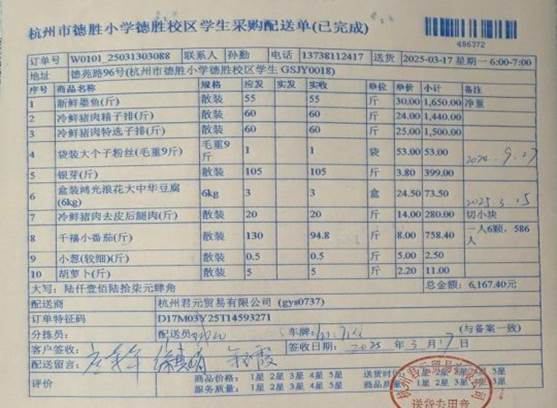 杭州市德胜小学德胜校区学生采购配送单(已完成)
486372
订单号 W0101_25031303088 联系人 孙勤 电话 13738112417 送货 2025-03-17 星期一 6:00-7:00
地址 德苑路96号(杭州市德胜小学德胜校区学生 GSJY0018)
序号 商品名称 规格 应发 实发 实收 单位 单价 小计 备注
1 新鲜墨鱼(斤) 散装 55 55 斤 30.00 1,650.00 净重
2 冷鲜猪肉精子排(斤) 散装 60 60 斤 24.00 1,440.00
3 冷鲜猪肉特选子排(斤) 散装 60 60 斤 25.00 1,500.00
4 袋装大个子粉丝(毛重9斤) 毛重9斤 1 1 袋 53.00 53.00
5 银芽(斤) 散装 105 105 斤 3.80 399.00
6 盒装鸿光浪花大中华豆腐(6kg) 6kg 3 3 盒 24.50 73.50 2025.3.15
7 冷鲜猪肉去皮后腿肉(斤) 散装 20 20 斤 14.00 280.00 切小块
8 千禧小番茄(斤) 散装 130 94.8 斤 8.00 758.40 一人6颗，586人
9 小葱(较细)(斤) 散装 0.5 0.5 斤 5.00 2.50
10 胡萝卜(斤) 散装 5 5 斤 2.20 11.00
大写：陆仟壹佰陆拾柒元肆角 总金额：6,167.40元
配送商 杭州君元贸易有限公司 (gys0737)
订单特征码 D17M03Y25T14593271
分拣员： 配送员： 车牌： (与备案一致)
客户签收： 签收日期： 2025 年 3 月 17 日
配送留言：
评价 商品价格： 1星 2星 3星 4星 5星 送货时 1星 2星 3星 4星 5星
服务质量： 1星 2星 3星 4星 5星 商品质 1星 2星 3星 4星 5星
杭州君元贸易有限公司
送货专用章